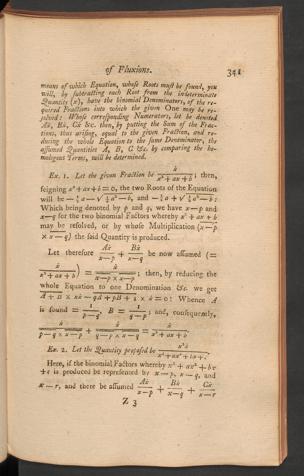 of Fluxions. 341
means of which Equation, whose Roots must be found, you
will, by subtracting each Root from the indeterminate
Quantity (x), have the binomial Denominators, of the re-
quired Fractions into which the given One may be re-
solved: Whose corresponding Numerators, let be denoted
Aẋ, Bẋ, Cẋ &c. then, by putting the Sum of the Frac-
tions, thus arising, equal to the given Fraction, and re-
ducing the whole Equation to the same Denominator, the
assumed Quantities A, B, C &c. by comparing the ho-
mologous Terms, will be determined.
Ex. 1. Let the given Fraction be ẋ/(x²+ax+b); then,
feigning x²+ax+b=0, the two Roots of the Equation
will be −½a−√¼a²−b, and −½a+√¼a²−b:
Which being denoted by p and q, we have x−p and
x−q for the two binomial Factors whereby x²+ax+b
may be resolved, or by whose Multiplication (x−p
× x−q) the said Quantity is produced.
Let therefore Aẋ/(x−p) + Bẋ/(x−q) be now assumed (=
ẋ/(x²+ax+b)) = ẋ/(x−p × x−q); then, by reducing the
whole Equation to one Denomination &c. we get
A+B × xẋ−qA+pB+1 × ẋ=0: Whence A
is found = 1/(p−q), B = 1/(q−p); and, consequently,
ẋ/(p−q × x−p) + ẋ/(q−p × x−q) = ẋ/(x²+ax+b).
Ex. 2. Let the Quantity proposed be
Here, if the binomial Factors whereby x³+ax²+bx
+c is produced be represented by x−p, x−q, and
x−r, and there be assumed Aẋ/(x−p) + Bẋ/(x−q) + Cẋ/(x−r)
Z 3